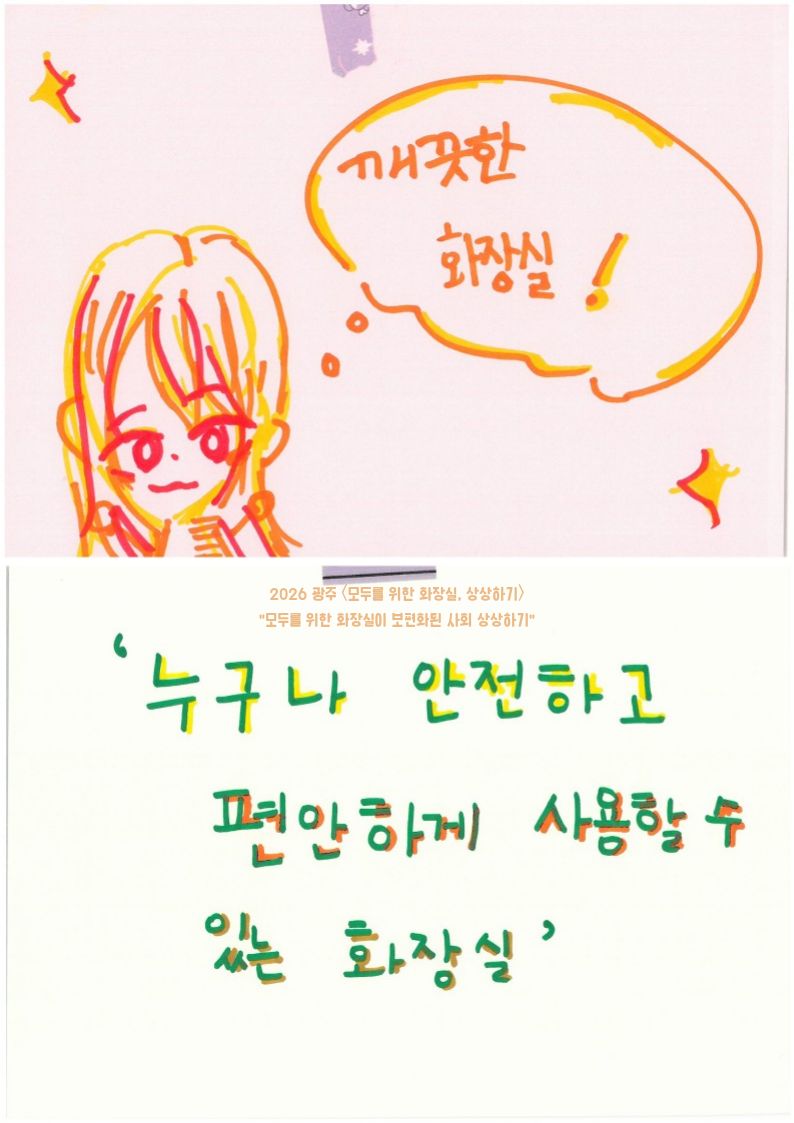 깨끗한
화장실!
2026 광주 <모두를 위한 화장실, 상상하기>
"모두를 위한 화장실이 보편화된 사회 상상하기"
'누구나 안전하고
편안하게 사용할 수
있는 화장실'